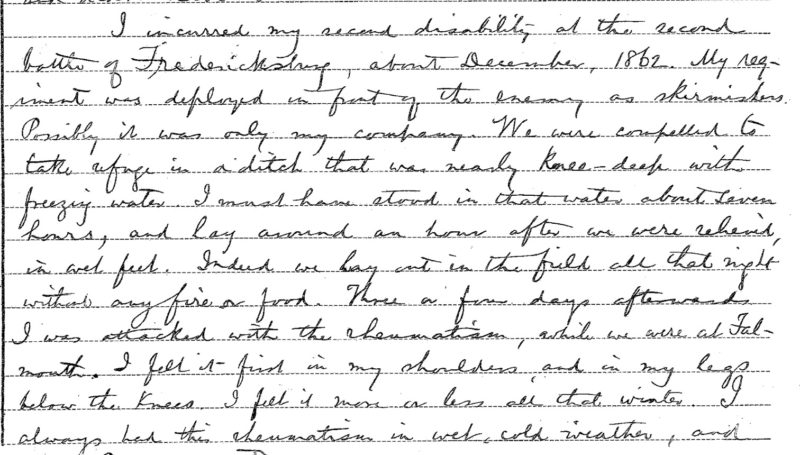 I incurred my second disability at the second
battle of Fredericksburg, about December, 1862. My reg-
iment was deployed in front of the enemy as skirmishers.
Possibly it was only my company. We were compelled to
take refuge in a ditch that was nearly knee-deep with
freezing water. I must have stood in that water about seven
hours, and lay around an hour after we were relieved,
in wet feet. Indeed we lay out in the field all that night
without any fire or food. Three or four days afterwards
I was attacked with the rheumatism, while we were at Fal-
mouth. I felt it first in my shoulders and in my legs
below the knees. I felt it more or less all that winter. I
always had this rheumatism in wet, cold weather, and